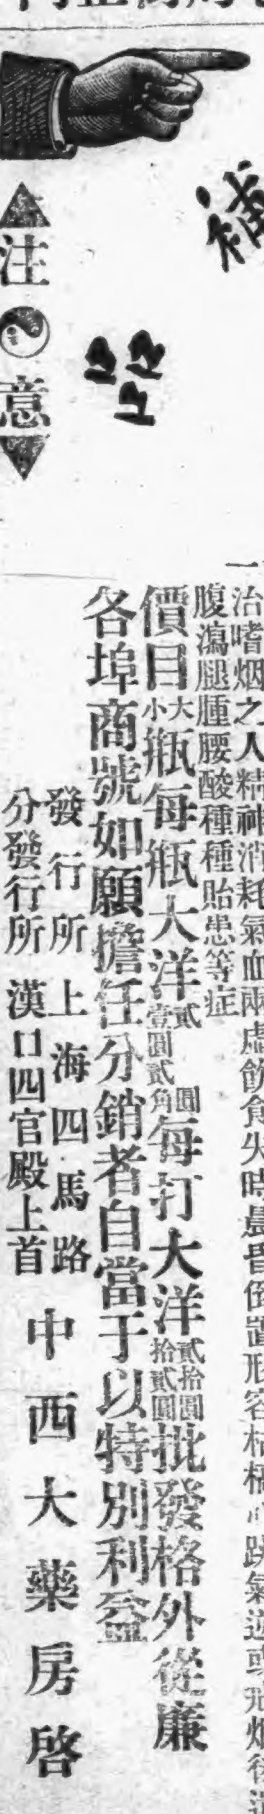 補
注意
治嗜烟之人精神消耗氣血兩虛飲食失時晨昏倒置形容枯槁心跳氣逆或戒烟後
腹瀉腿腫腰酸種種貽患等症
價目大小瓶每瓶大洋貳圓壹圓貳角每打大洋貳拾圓拾貳圓批發格外從廉
各埠商號如願擔任分銷者自當予以特別利益
發行所上海四馬路
分發行所漢口四官殿上首
中西大藥房啓